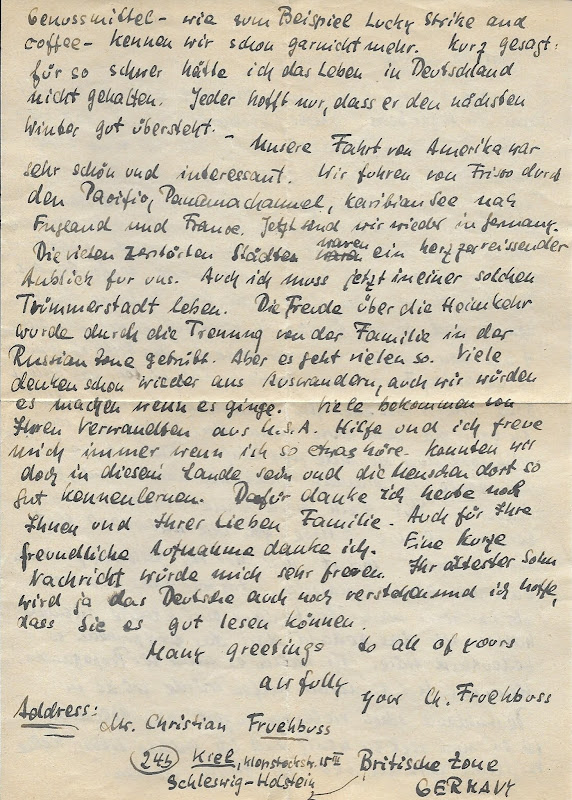 Genussmittel - wie zum Beispiel Lucky Strike and
coffee - kennen wir schon garnicht mehr. Kurz gesagt:
für so schwer hätte ich das Leben in Deutschland
nicht gehalten. Jeder hofft nur, dass er den nächsten
Winter gut übersteht. -
Unsere Fahrt von Amerika war
sehr schön und interessant. Wir fuhren von Frisco durch
den Pacific, Panamachannel, Karibian See nach
England und France. Jetzt sind wir wieder in Germany.
Die vielen zerstörten Städten waren ein herzzerreissender
Anblick für uns. Auch ich muss jetzt in einer solchen
Trümmerstadt leben. Die Freude über die Heimkehr
wurde durch die Trennung von der Familie in der
Russian Zone getrübt. Aber es geht vielen so. Viele
denken schon wieder ans Auswandern, auch wir würden
es machen wenn es ginge. Viele bekommen von
Ihren Verwandten aus U.S.A. Hilfe und ich freue
mich immer wenn ich so etwas höre. Konnten wir
doch in diesem Lande sein und die Menschen dort so
gut kennenlernen. Dafür danke ich heute noch
Ihnen und Ihrer lieben Familie. Auch für Ihre
freundliche Aufnahme danke ich. Eine Kurze
Nachricht würde mich sehr freuen. Ihr ältester Sohn
wird ja das Deutsche auch noch verstehen und ich hoffe,
dass Sie es gut lesen können.
Many greetings to all of yours
your Ch. Fruehbuss
Address:
Mr. Christian Fruehbuss
(24b) Kiel, Klopstockstr. 15 III
Schleswig-Holstein
Britische Zone
GERMANY